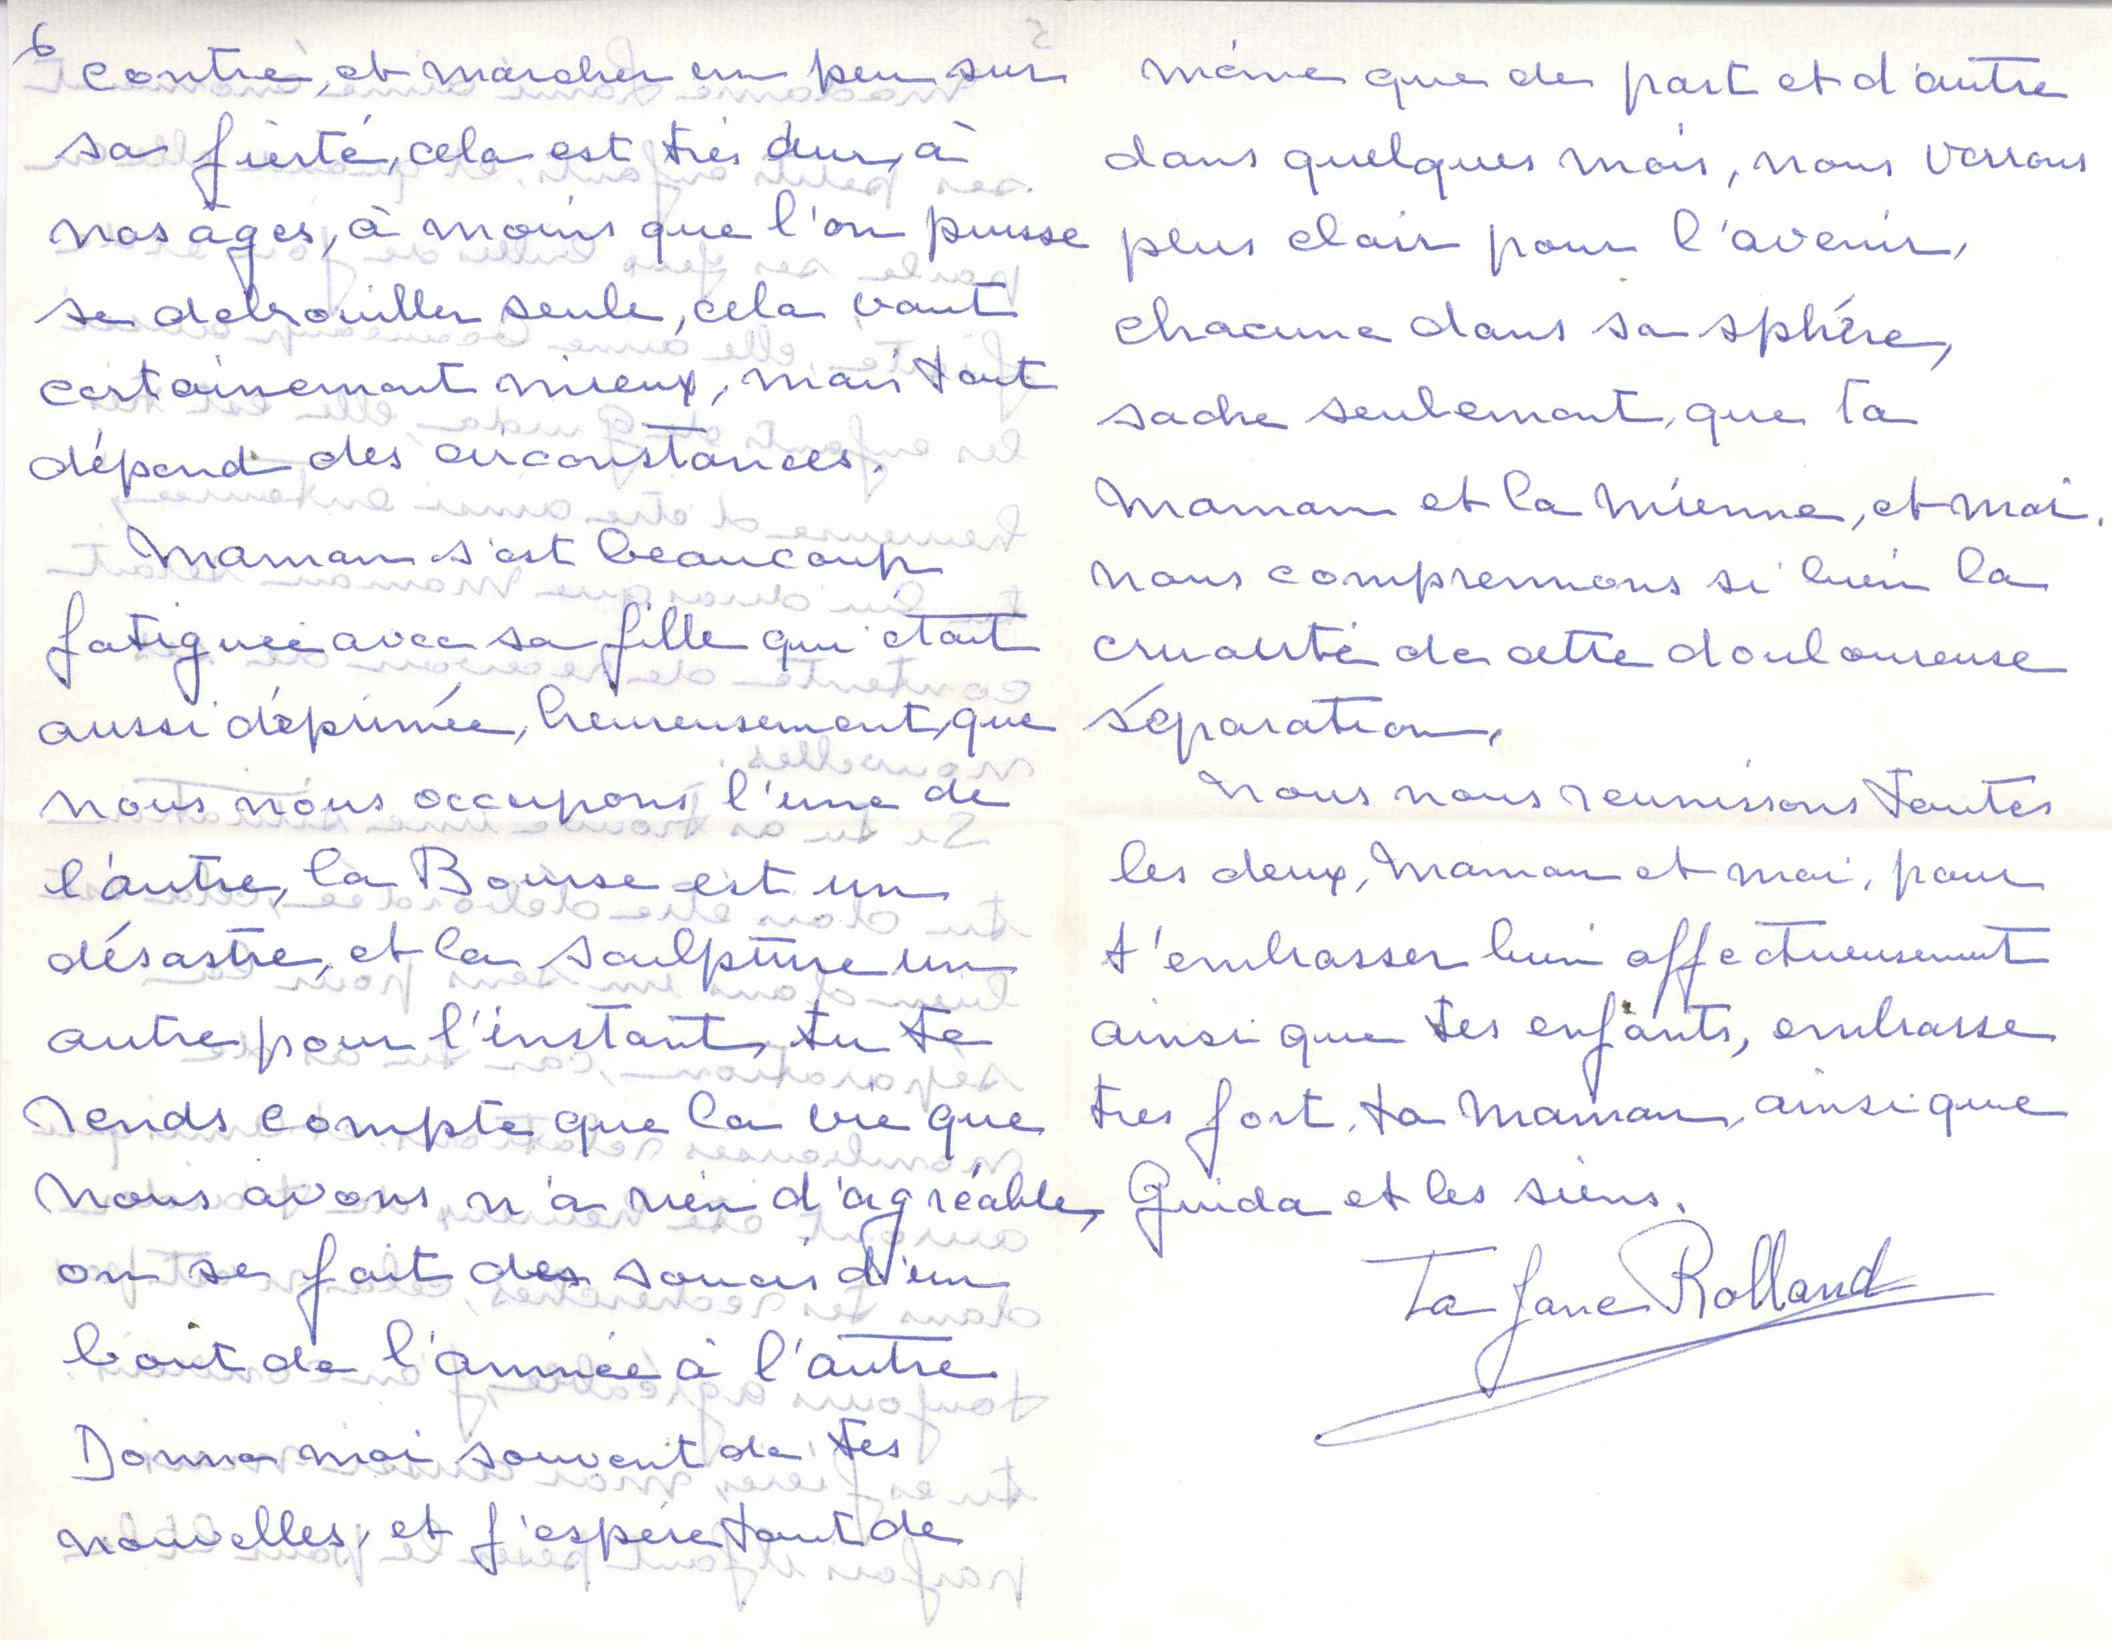 6
contre, et marcher un peu sur
sa fierté, cela est très dur, à
nos âges, à moins que l'on puisse
se debrouiller seule, cela vaut
certainement mieux, mais tout
dépend des circonstances.
Maman s'est beaucoup
fatiguée avec sa fille qui était
aussi déprimée, heureusement, que
nous nous occupons l'une de
l'autre, la Bourse est un
désastre, et la sculpture un
autre pour l'instant, tu te
rends compte que la vie que
nous avons n'a rien d'agréable,
on se fait des soucis d'un
bout de l'année à l'autre
Donne moi souvent de tes
nouvelles, et j'espère tout de
même que de part et d'autre
dans quelques mois, nous verrons
plus clair pour l'avenir,
chacune dans sa sphère,
sache seulement, que ta
Maman et la mienne, et moi.
nous comprenons si bien la
cruauté de cette douloureuse
séparation.
Nous nous reunissons toutes
les deux, Maman et moi, pour
t'embrasser bien affectueusement
ainsi que tes enfants, embrasse
tres fort, ta Maman, ainsi que
Guida et les siens.
Ta Jane Rolland